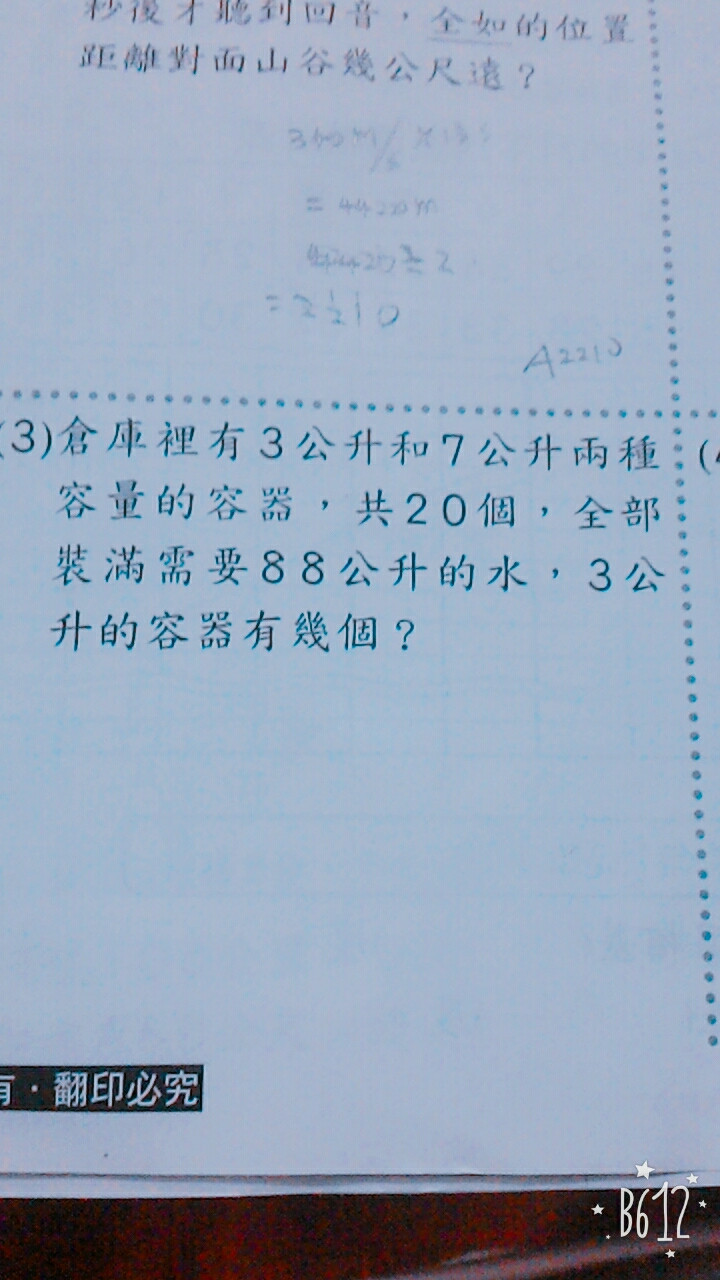 秒後才聽到回音，全如的位置
距離對面山谷幾公尺遠？
= 4420m
4420÷2
A2210
(3)倉庫裡有3公升和7公升兩種
容量的容器，共20個，全部
裝滿需要88公升的水，3公
升的容器有幾個？
有．翻印必究
B612